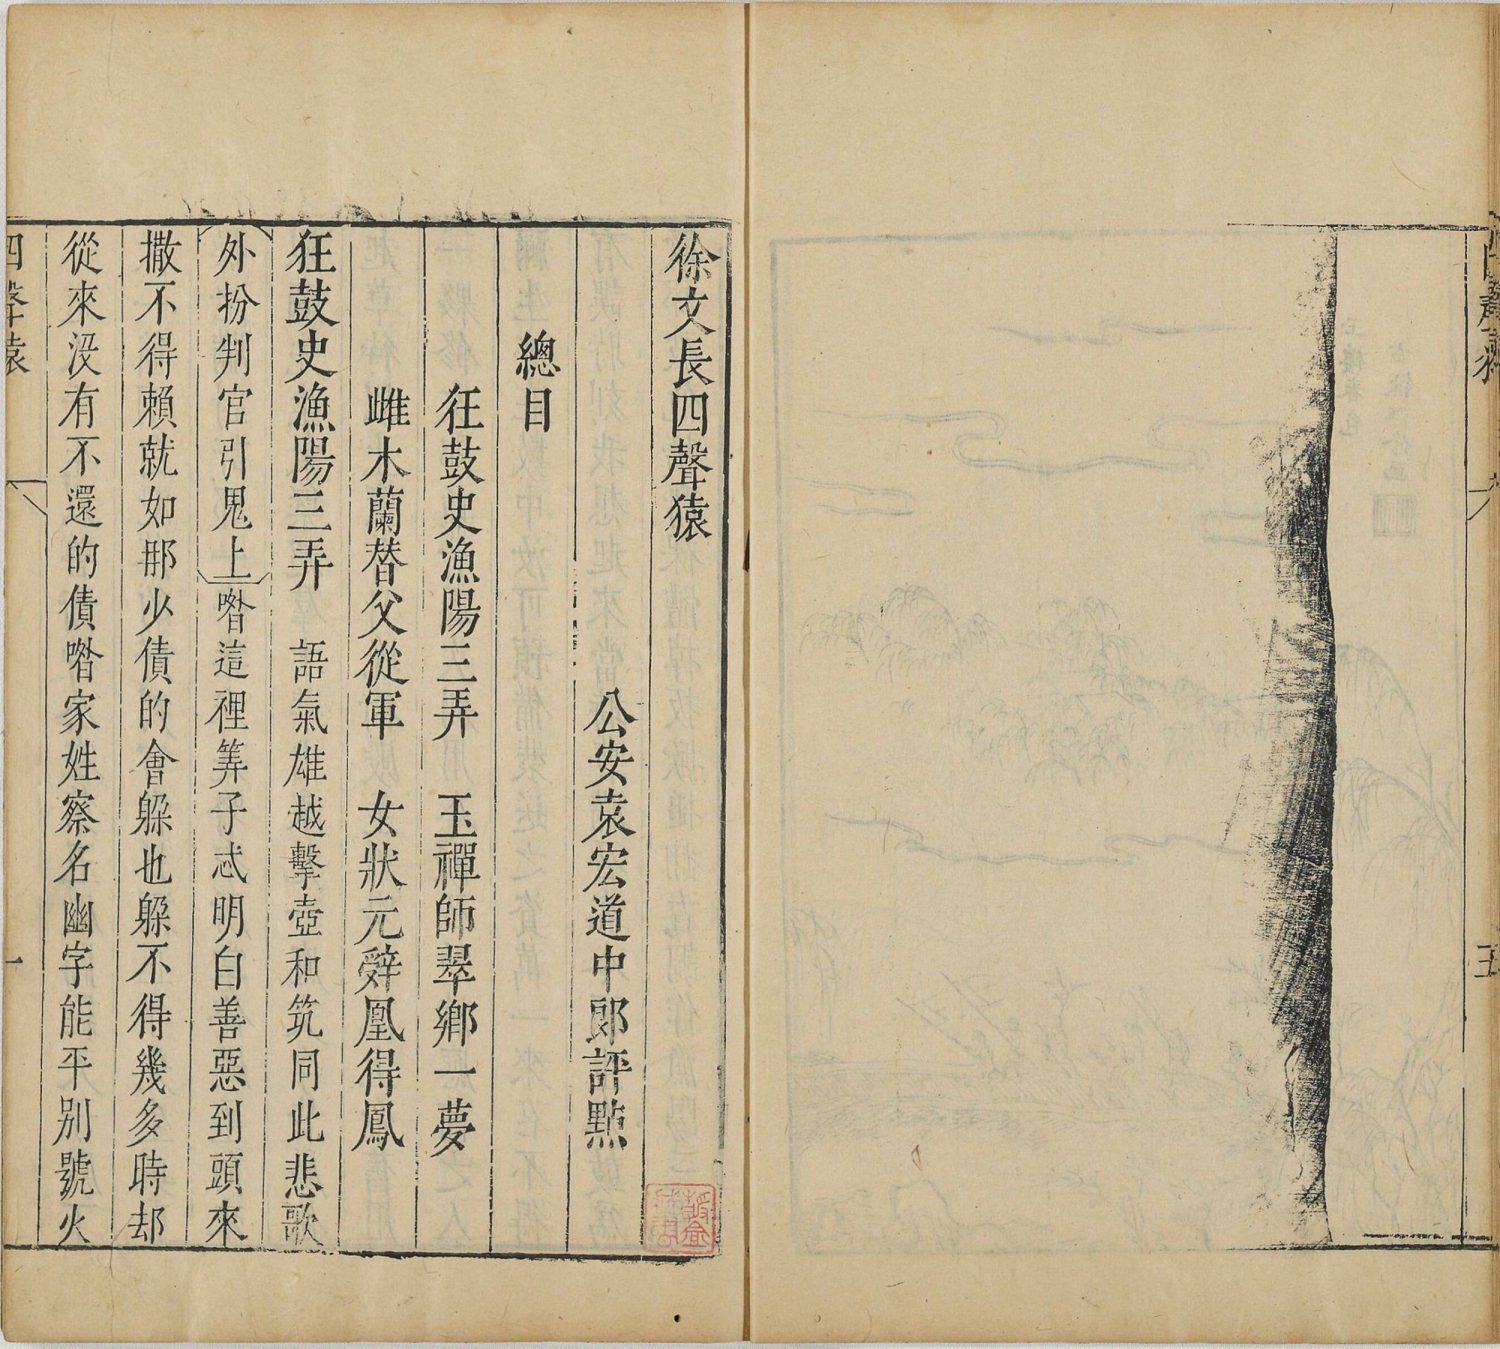 徐文長四聲猿
公安袁宏道中郎評點
總目
狂鼓史漁陽三弄 玉禪師翠鄉一夢
雌木蘭替父從軍 女狀元辭凰得鳳
狂鼓史漁陽三弄 語氣雄越擊壺和筑同此悲歌
外扮判官引鬼上喒這裡筭子忒明白善惡到頭來
撒不得賴就如那少債的會躲也躲不得幾多時却
從來沒有不還的債喒家姓察名幽字能平別號火
四聲猿
一